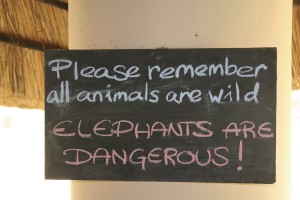 Please remember
all animals are wild
ELEPHANTS ARE
DANGEROUS!